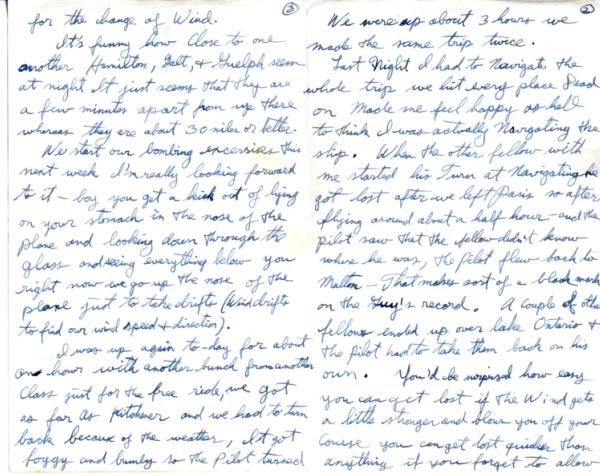 ②
We were up about 3 hours we
made the same trip twice.
Last Night I had to Navigate the
whole trip we hit every place Dead
on Made me feel happy as hell
to think I was actually Navigating the
ship. When the other fellow with
me started his Turn at Navigating he
got lost after we left Paris so after
flying around about a half hour - and the
pilot saw that the fellow didn't know
where he was, the pilot flew back to
Malton - That makes sort of a black mark
on the Guy's record. A couple of other
fellows ended up over lake Ontario &
the pilot had to take them back on his
own. You'd be surprised how easy
you can get lost if the Wind gets
a little stronger and blows you off your
Course you can get lost quicker than
anything if your forget to allow
③
for the change of Wind.
It's funny how Close to one
another Hamilton, Galt, & Guelph seem
at night It just seems that they are
a few minutes apart from up there
whereas they are about 30 miles or better.
We start our bombing excersises this
next week I'm really looking forward
to it - boy you get a kick out of lying
on your stomach in the nose of the
plane and looking down through the
glass and seeing everything below you
right now we go up the nose of the
plane just to take drifts (Wind drifts
to find our wind speed & direction).
I was up again to-day for about
one hour with another bunch from another
Class just for the free ride, we got
as far as Kitchener and we had to turn
back because of the weather, It got
foggy and bumby so the Pilot turned